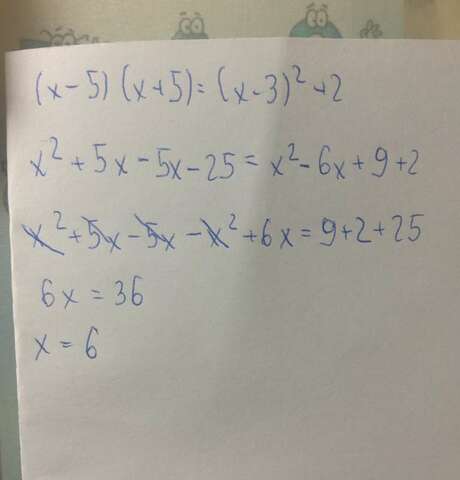 (x-5)(x+5)=(x-3)²+2
x²+5x-5x-25=x²-6x+9+2
x²+5x-5x-x²+6x=9+2+25
6x=36
x=6